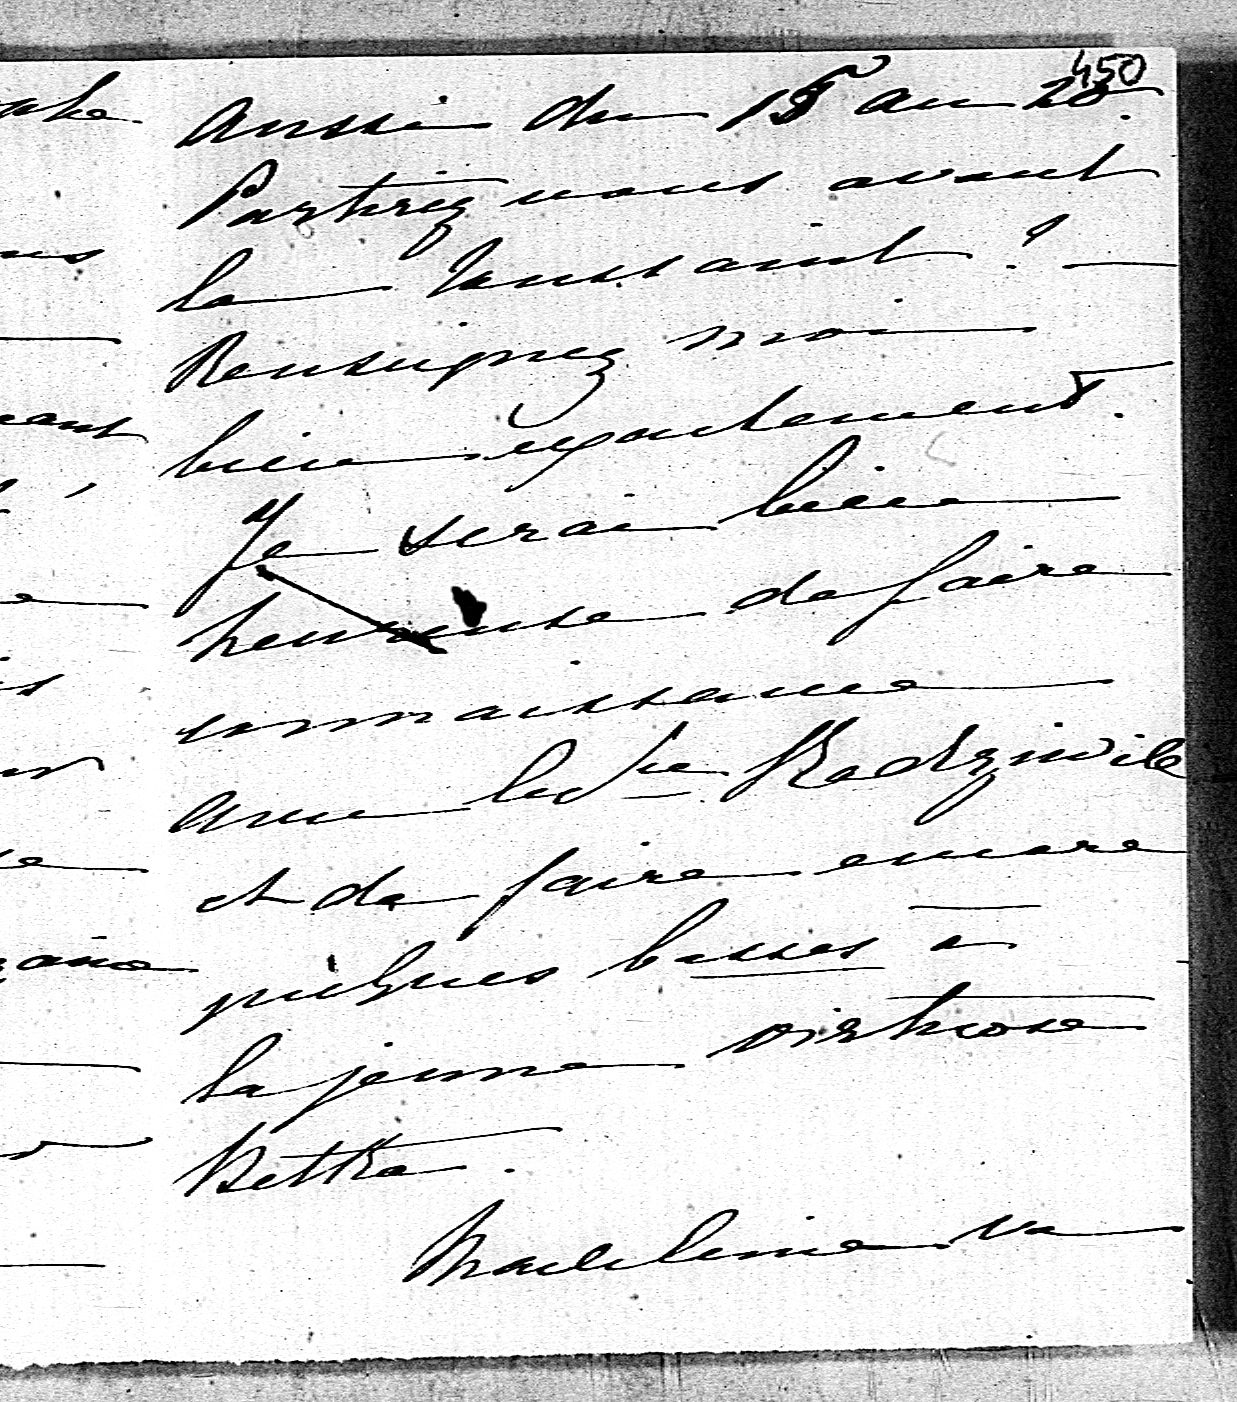 450
aussi du 15 au 20.
Partirez vous avant
la Toussaint ? —
Renseignez moi
bien exactement.
Je serai bien
heureuse de faire
connaissance
avec la Psse Radziwill
et de faire encore
quelques basses à
la jeune virtuose
Bettka.
Madeleine va